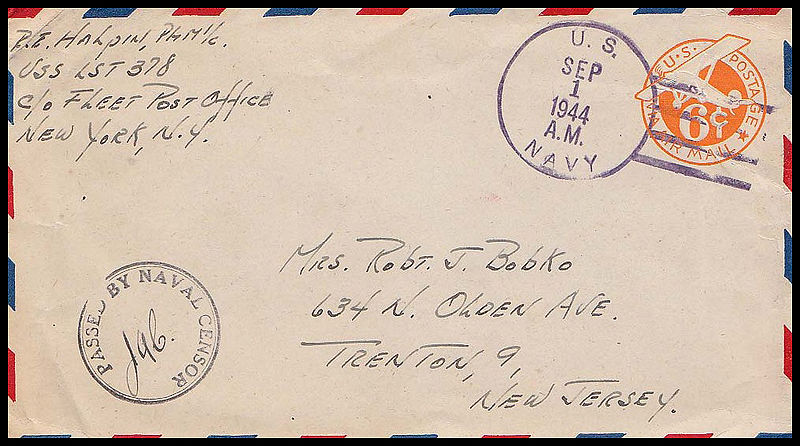 R.E. HALPIN, PHM1/c.
USS LST 378
C/O FLEET POST OFFICE
NEW YORK, N.Y.
U.S.
SEP
1
1944
A.M.
NAVY
U.S. POSTAGE
6¢
VIA AIR MAIL
PASSED BY NAVAL CENSOR
MRS. ROBT. J. BOBKO
634 N. OLDEN AVE.
TRENTON, 9,
NEW JERSEY.